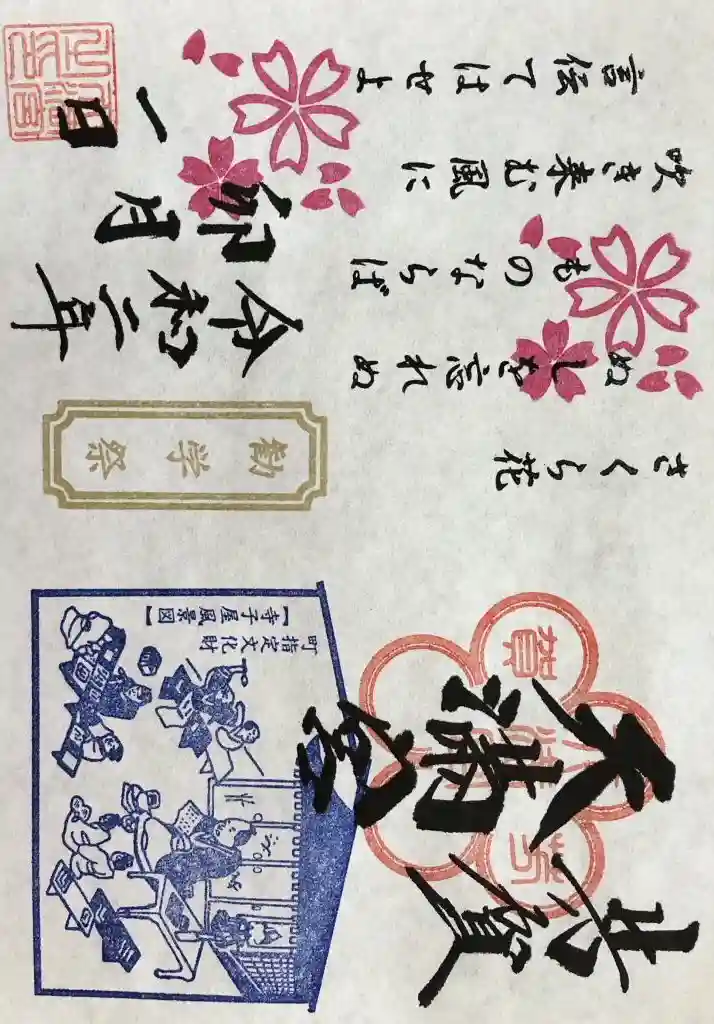 芳賀
天満宮
芳
賀
町指定文化財
【寺子屋風景図】
さくら花
ぬしを忘れぬ
ものならば
吹き来む風に
言伝てはせよ
勧学祭
令和二年
卯月
一日